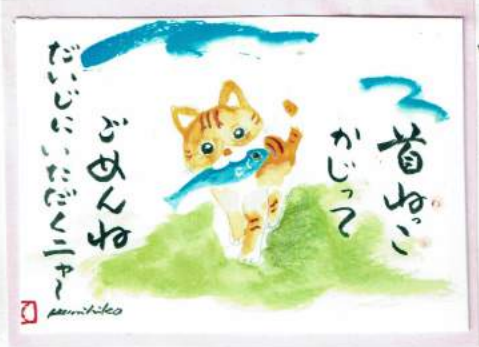 首ねっこ
かじって
ごめんね
だいじにいただくニャ～
Fumihiko